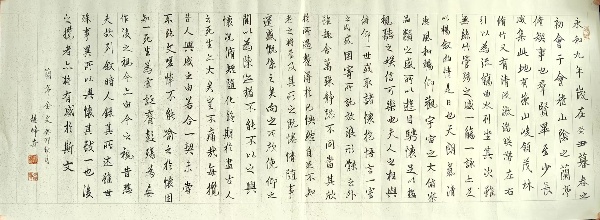 永和九年歲在癸丑暮春之
初會于會稽山陰之蘭亭
脩禊事也群賢畢至少長
咸集此地有崇山峻領茂林
脩竹又有清流激湍映帶左右
引以為流觴曲水列坐其次雖
無絲竹管弦之盛一觴一詠亦足
以暢敘幽情是日也天朗氣清
惠風和暢仰觀宇宙之大俯察
品類之盛所以遊目騁懷足以極
視聽之娛信可樂也夫人之相與
俯仰一世或取諸懷抱悟言一室
之內或因寄所託放浪形骸之外
雖趣舍萬殊靜躁不同當其欣
於所遇暫得於己快然自足不知
老之將至及其所之既倦情隨事
遷感慨係之矣向之所欣俛仰之
間以為陳迹猶不能不以之興
懷況脩短隨化終期於盡古人
云死生亦大矣豈不痛哉每攬
昔人興感之由若合一契未嘗
不臨文嗟悼不能喻之於懷固
知一死生為虛誕齊彭殤為妄
作後之視今亦由今之視昔悲
夫故列敘時人錄其所述雖世
殊事異所以興懷其致一也後
之攬者亦將有感於斯文
蘭亭全文